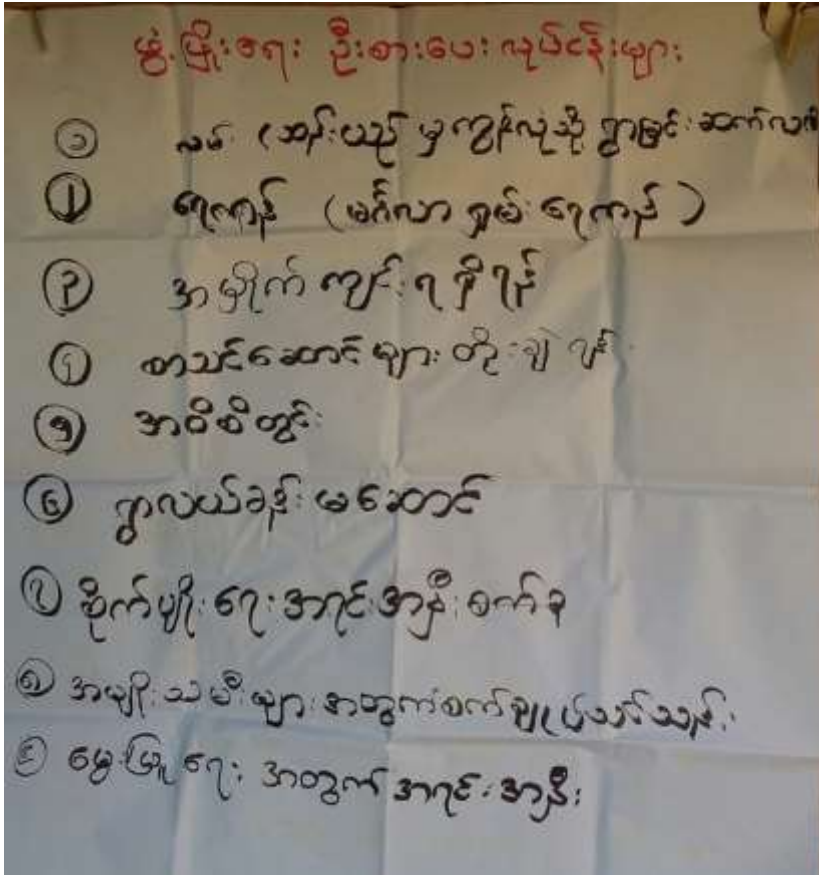 ဖွံ့ဖြိုးရေး ဦးစားပေး လုပ်ငန်းများ
၁ လမ်း (ဆန်းပယ် မှ ကျွန်းလှသို့ ရွာချင်းဆက်လမ်း
၂ ရေကန် (မင်္ဂလာ ရှမ်း ရေကန်)
၃ အမှိုက် ကျင်း ရရှိရန်
၄ စာသင်ဆောင်များ တိုးချဲ့ရန်
၅ အဝီစိတွင်း
၆ ရွာလယ်ခန်းမဆောင်
၇ စိုက်ပျိုးရေး အရင်းအနှီး စက်
၈ အမျိုးသမီးများ အတွက် စက်ချုပ်သင်တန်း
၉ မွေးမြူရေး အတွက် အရင်းအနှီး